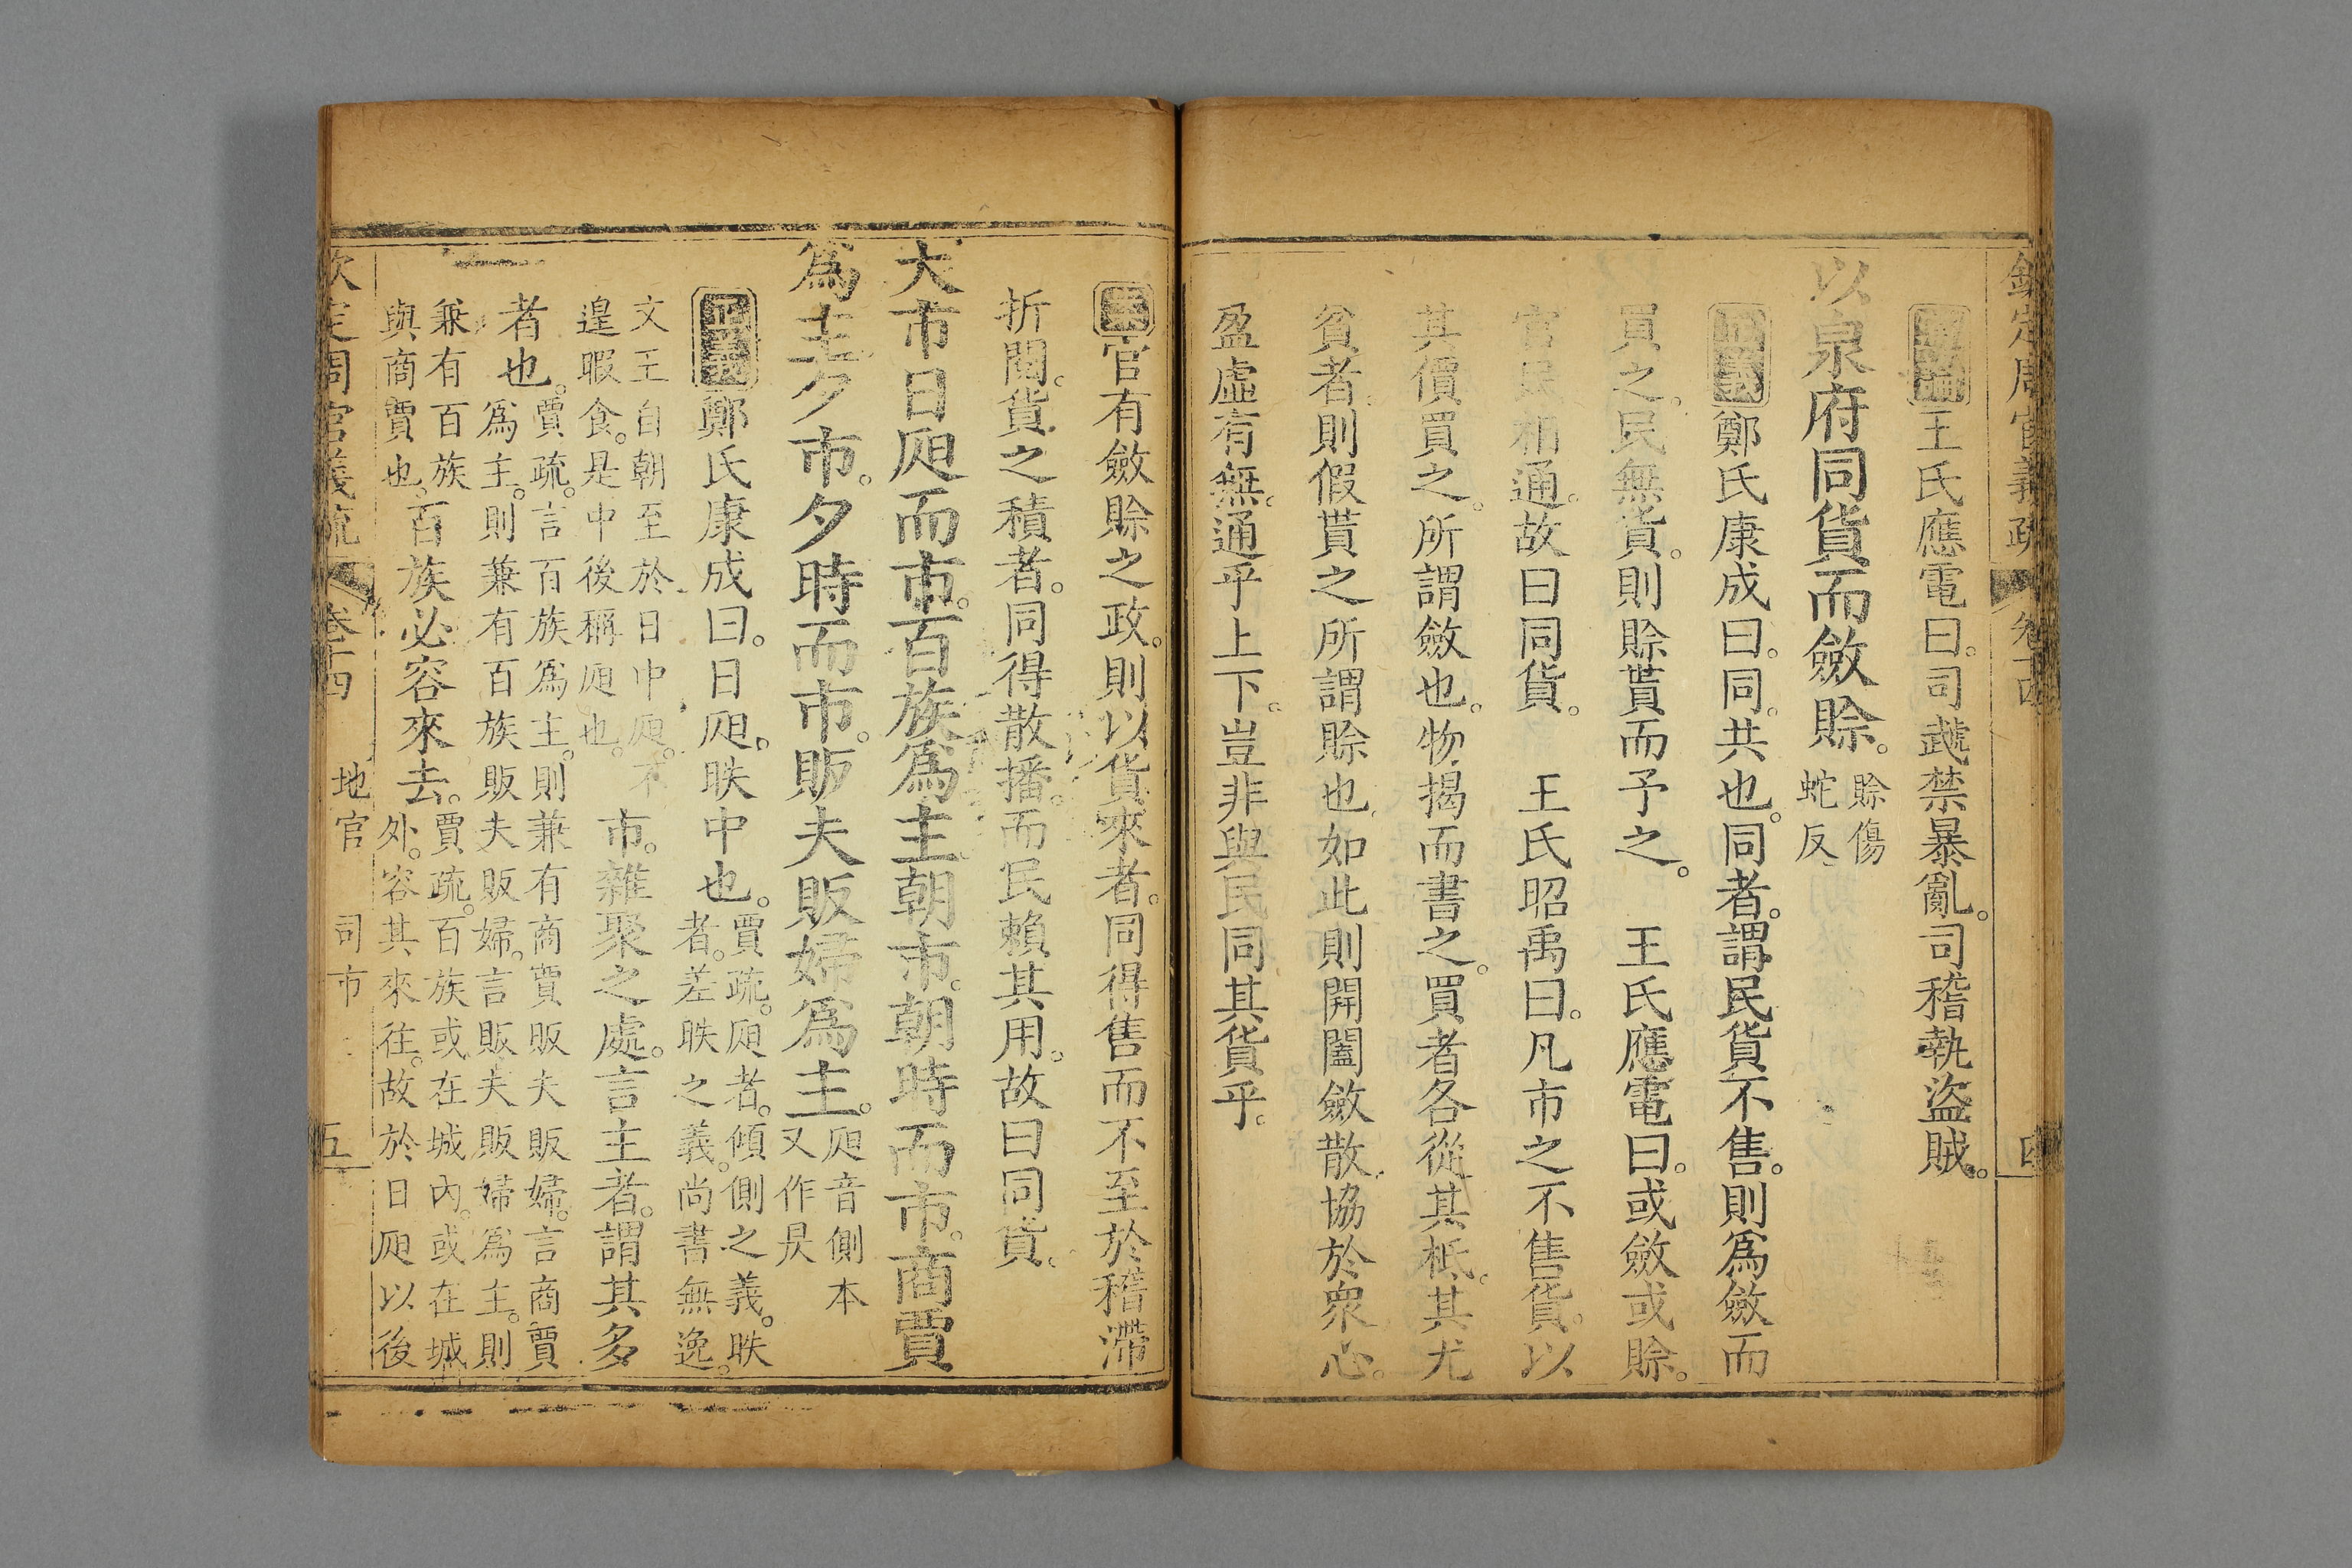 欽定周官義疏 卷十四 四
通論王氏應電曰。司虣禁暴亂。司稽執盜賊。
以泉府同貨而斂賒。賒傷蛇反
正義鄭氏康成曰。同。共也。同者。謂民貨不售。則爲斂而
買之。民無貨。則賒貰而予之。 王氏應電曰。或斂或賒。
官民相通。故曰同貨。 王氏昭禹曰。凡市之不售貨。以
其價買之。所謂斂也。物揭而書之。買者各從其柢。其尤
貧者。則假貰之所謂賒也。如此則開闔斂散。協於衆心。
盈虛有無。通乎上下。豈非與民同其貨乎。
官有斂賒之政。則以貨來者。同得售而不至於稽滯
折閱。貨之積者。同得散播。而民賴其用。故曰同貨。
大市日㫼而市。百族爲主。朝市。朝時而市。商賈
爲主。夕市。夕時而市。販夫販婦爲主。㫼音側本又作昃
正義鄭氏康成曰。日㫼。昳中也。賈疏。㫼者。傾側之義。昳者。差昳之義。尚書無逸。
文王自朝至於日中㫼。不遑暇食。是中後稱㫼也。市。雜聚之處。言主者。謂其多
者也。賈疏。言百族爲主。則兼有商賈販夫販婦。言商賈爲主。則兼有百族販夫販婦。言販夫販婦爲主。則
兼有百族與商賈也。百族必容來去。賈疏。百族或在城內。或在城外。容其來往。故於日㫼以後
欽定周官義疏 卷十四 地官 司市 五